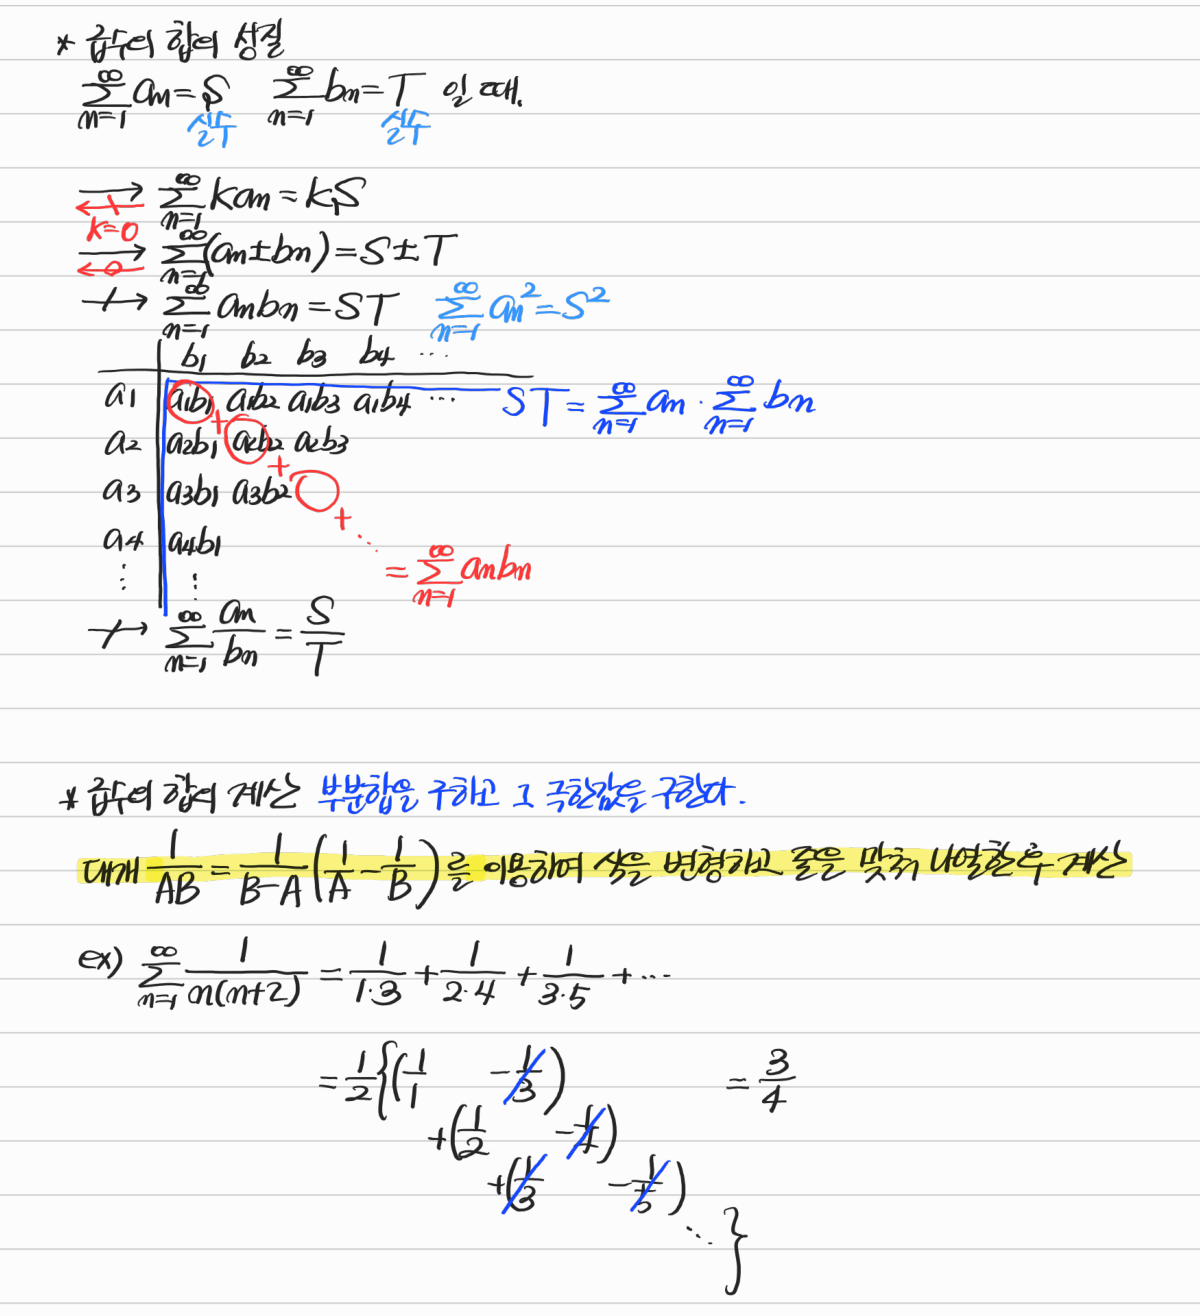 * 급수의 합의 성질
∞Σn=1 an = S ∞Σn=1 bn = T 일 때.
실수 실수
→ ∞Σn=1 kan = kS
← k=0
→ ∞Σn=1 (an ± bn) = S ± T
←
↛ ∞Σn=1 anbn = ST ∞Σn=1 an² = S²
b1 b2 b3 b4 ⋯
a1 a1b1 a1b2 a1b3 a1b4 ⋯ ST = ∞Σn=1 an · ∞Σn=1 bn
+
a2 a2b1 a2b2 a2b3
+
a3 a3b1 a3b2
+ ⋱
a4 a4b1 = ∞Σn=1 anbn
⋮ ⋮
↛ ∞Σn=1 an/bn = S/T
* 급수의 합의 계산 부분합을 구하고 그 극한값을 구한다.
대개 1/AB = 1/B-A (1/A - 1/B)를 이용하여 식을 변형하고 줄을 맞춰 나열한 후 계산
ex) ∞Σn=1 1/n(n+2) = 1/1·3 + 1/2·4 + 1/3·5 + ⋯
= 1/2 {(1/1 - 1/3) = 3/4
+(1/2 - 1/4)
+(1/3 - 1/5)
⋱ }